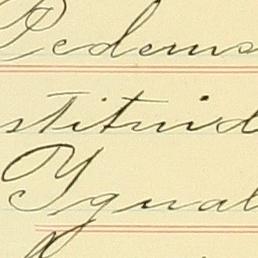 Pederns
stituid
Ygual